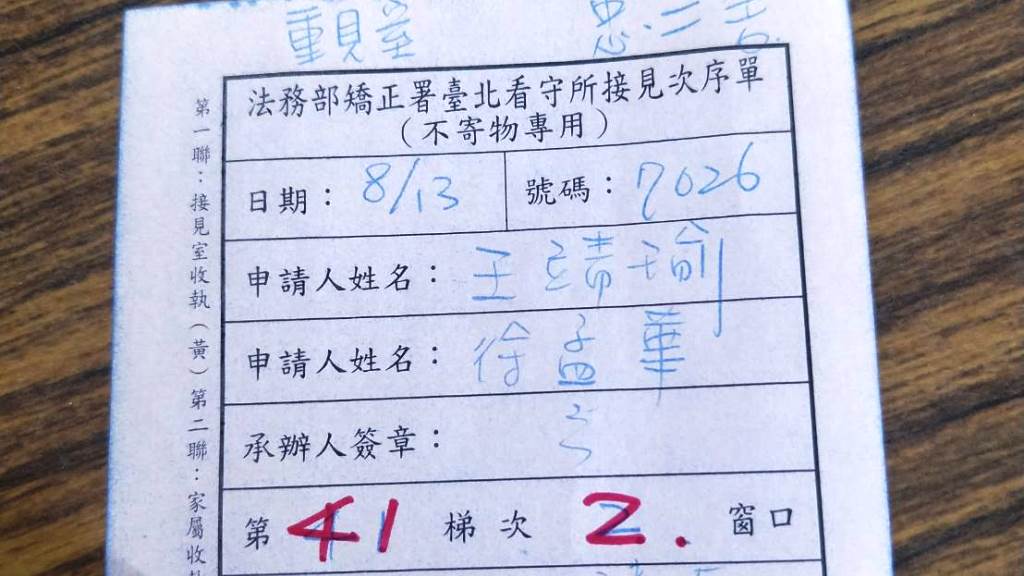 法務部矯正署臺北看守所接見次序單
(不寄物專用)
日期：8/13 號碼：7026
申請人姓名：王靖瑜
申請人姓名：徐孟華
承辦人簽章：
第 41 梯次 2. 窗口
第一聯：接見室收執(黃)第二聯：家屬收執